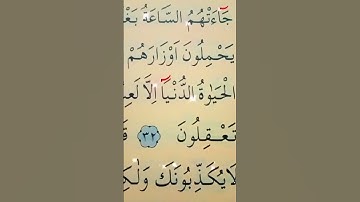 جَٓاءَتْهُمُ السَّاعَةُ بَغْ
يَحْمِلُونَ اَوْزَارَهُمْ
الْحَيٰوةُ الدُّنْيَٓا اِلَّا لَعِ
تَعْقِلُونَ ٣٢ قَ
لَا يُكَذِّبُونَكَ وَلٰكِ